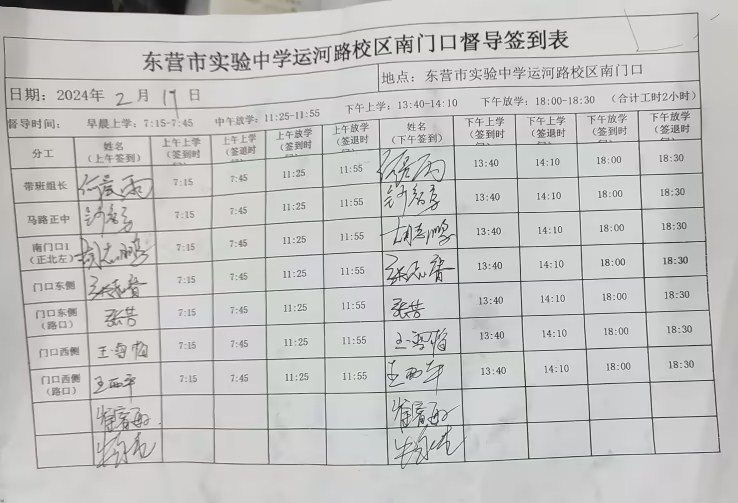 东营市实验中学运河路校区南门口督导签到表
日期：2024年 2 月 19 日 地点：东营市实验中学运河路校区南门口
督导时间： 早晨上学：7:15-7:45 中午放学：11:25-11:55 下午上学：13:40-14:10 下午放学：18:00-18:30 （合计工时2小时）
分工 姓名 上午上学 上午上学 上午放学 上午放学 姓名 下午上学 下午上学 下午放学 下午放学
（上午签到） （签到时 （签退时 （签到时 （签退时 （下午签到） （签到时 （签退时 （签到时 （签退时
带班组长 7:15 7:45 11:25 11:55 13:40 14:10 18:00 18:30
马路正中 7:15 7:45 11:25 11:55 13:40 14:10 18:00 18:30
南门口1
（正北左） 胡志鹏 7:15 7:45 11:25 11:55 胡志鹏 13:40 14:10 18:00 18:30
门口东侧 7:15 7:45 11:25 11:55 13:40 14:10 18:00 18:30
门口东侧
（路口） 7:15 7:45 11:25 11:55 13:40 14:10 18:00 18:30
门口西侧 7:15 7:45 11:25 11:55 13:40 14:10 18:00 18:30
门口西侧
（路口） 王西平 7:15 7:45 11:25 11:55 王西平 13:40 14:10 18:00 18:30